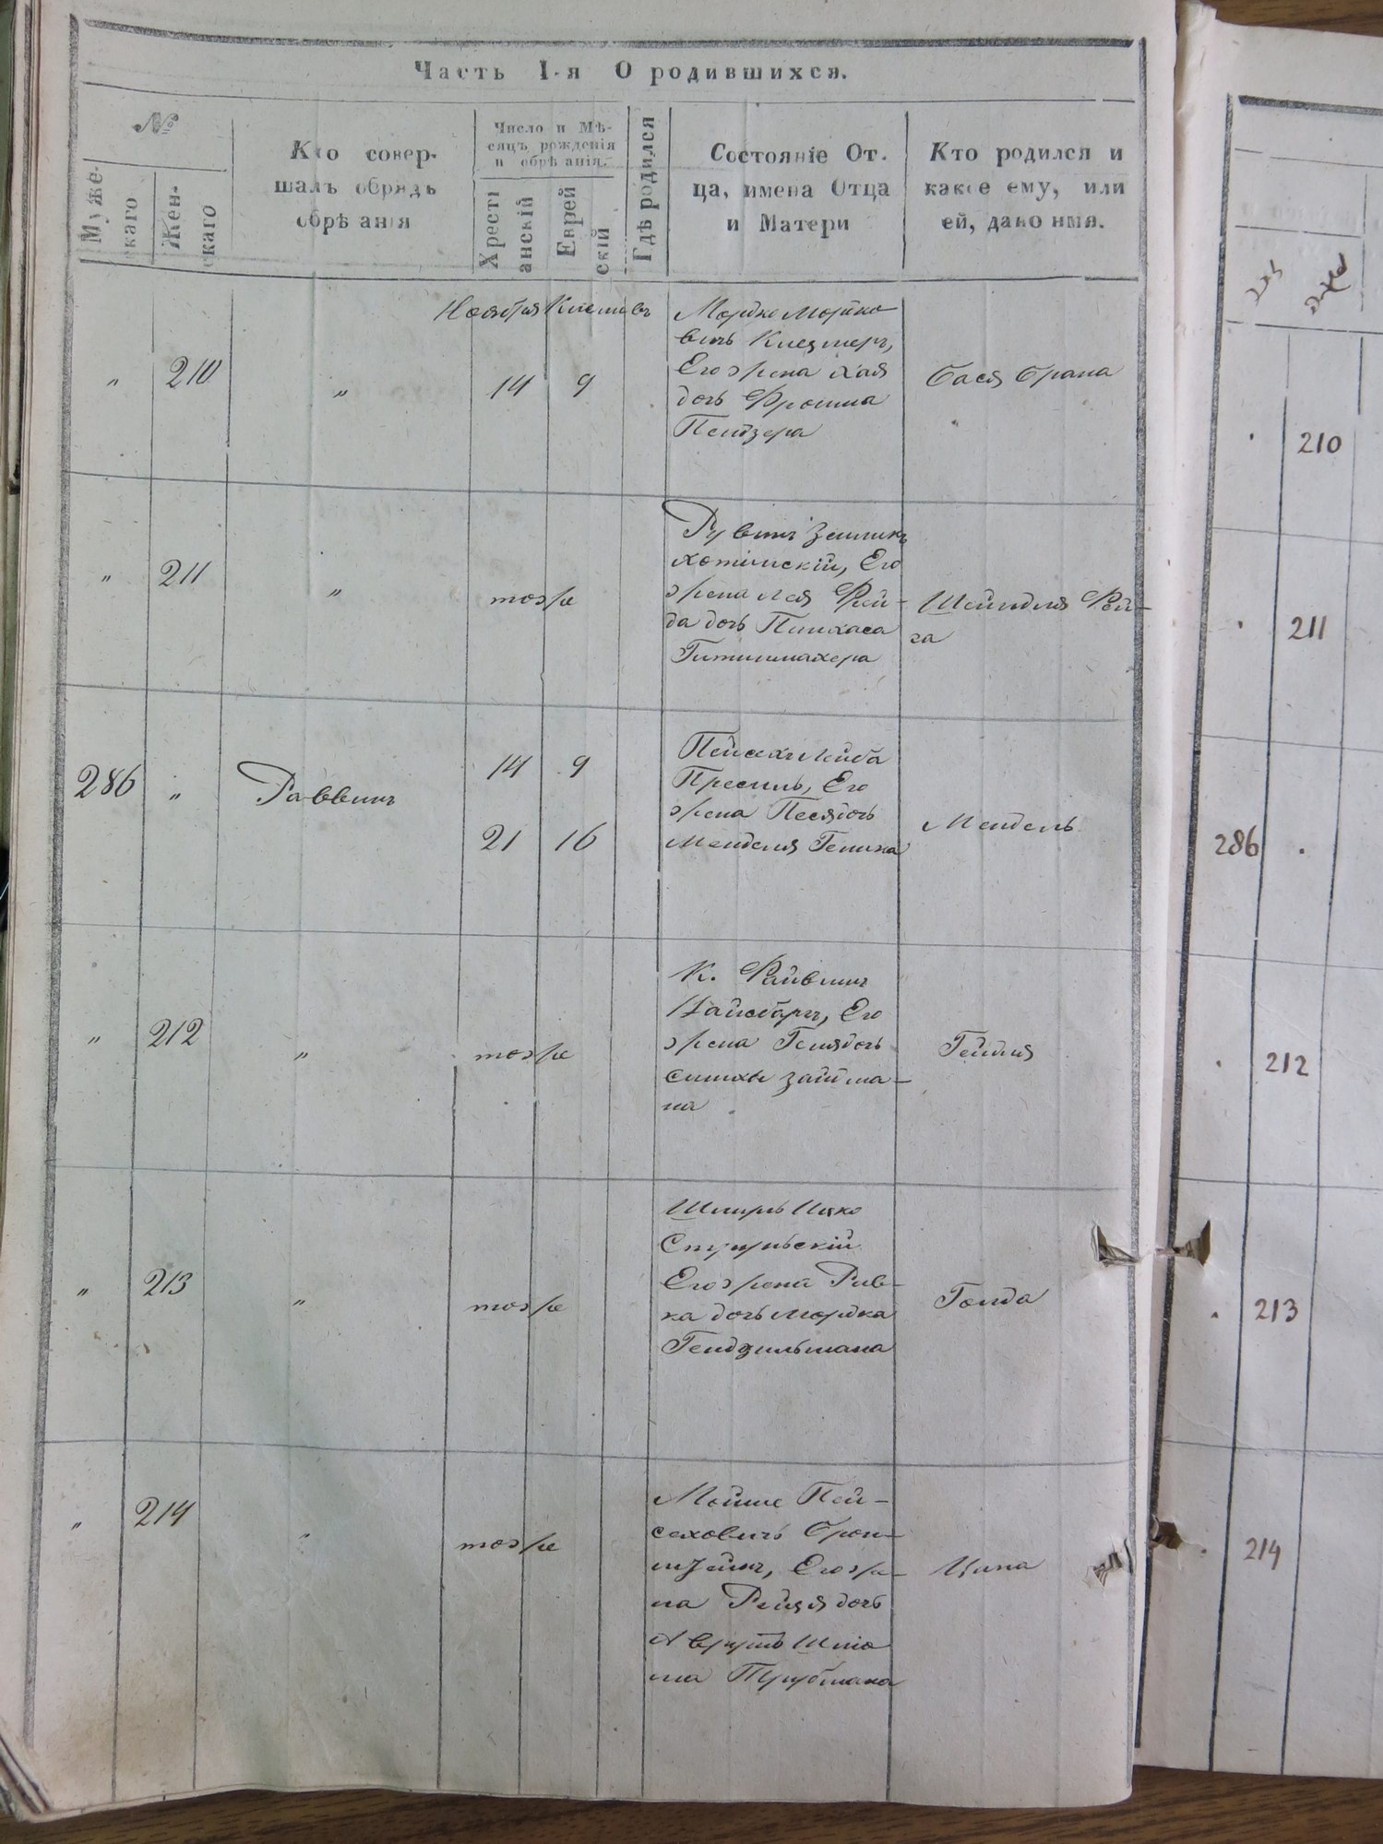 Часть I-я О родившихся.
№
Муже-
скаго
Жен-
скаго
Кто совер-
шалъ обрядъ
обрѣзанія
Число и Мѣ-
сяцъ рожденія
и обрѣзанія.
Христі
анскій
Еврей
скій
Гдѣ родился
Состояніе От-
ца, имена Отца
и Матери
Кто родился и
какое ему, или
ей, дано имя.
Ноября Кислевъ
„ 210 „ 14 9
Мордко Мортко
вичъ Клезмеръ,
Его жена Хая
дочь Фроима
Бася Брана
„ 211 „ тоже
Рувинъ Зелманъ
Хотимскій, Его
жена Лея Фрей-
да дочь Пинхаса
Гитинмахера
Шейндля Рей-
за
286 „ Раввинъ 14 9
21 16
Пейсахъ Лейба
Пресиль, Его
жена Песя дочь
Менделя Гениха
Мендель
„ 212 „ тоже
К. Файвишъ
Вайсбергъ, Его
жена Геня дочь
Симхи Зайтма-
на
Гейтля
„ 213 „ тоже
Шмиръ Ицко
Его жена Рив-
ка дочь Мордка
Гендзильмана
Голда
„ 214 „ тоже
Мойше Пей-
саховичъ Брон-
штейнъ, Его же-
на Рейзя дочь
Аврумъ Шлио
ма Трубмана
Ципа
210
211
286
212
213
214